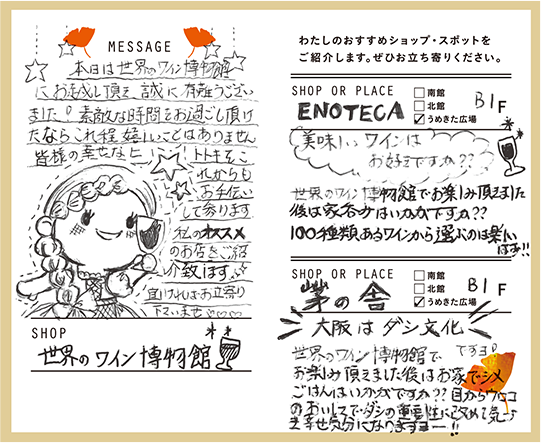 MESSAGE
本日は世界のワイン博物館
にお越し頂き、誠に有難うござい
ました♪素敵な時間をお過し頂け
たならこれ程嬉しいことはありません
皆様の幸せなヒ
トトキをこ
れからも
お手伝い
して参ります
私のオススメ
のお店をご紹
介致します。
宜ければお立寄り
下さいませ♡♡♡
SHOP
世界のワイン博物館
わたしのおすすめショップ・スポットを
ご紹介します。ぜひお立ち寄りください。
SHOP OR PLACE
ENOTECA
南館
北館
うめきた広場
B1F
美味しいワインは
お好きですか??
世界のワイン博物館でお楽しみ頂きました
後は家呑みはいかがですか??
100種類あるワインから選ぶのは楽しい
はず!!
SHOP OR PLACE
茅の舎
南館
北館
うめきた広場
B1F
大阪はダシ文化
ですヨ♪
世界のワイン博物館で
お楽しみ頂きました後はお家で〆
ごはんはいかがですか??目からウロコ
のおいしてでダシの重要性に改めて気づ
き幸せ気分になりますョー!!